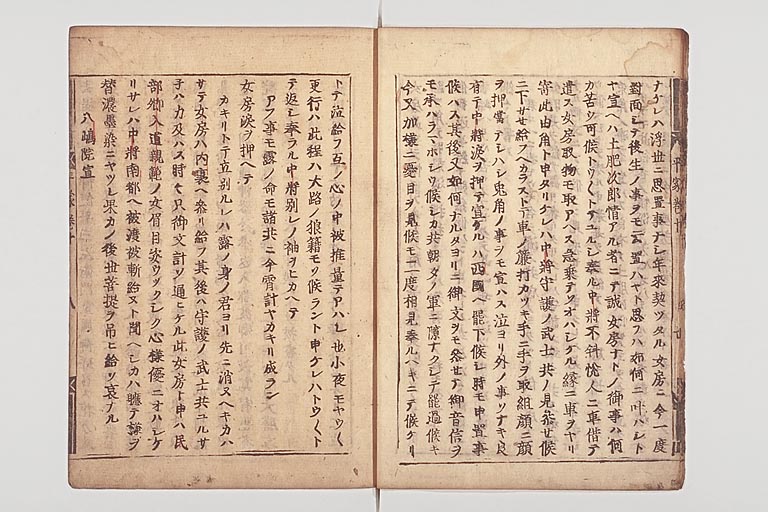 ナケレハ浮世ニ思置事ナシ年来契ツタル女房ニ今一度
對面シテ後生ノ事ヲモ云置ハヤト思フハ如何ニ叶ハシト
ヤ宣ヘハ土肥次郎情アル者ニテ誠女房ナトノ御事ハ何
カ苦ウ可候トウ〱トテユルシ奉ル中將不斜悦人ニ車借テ
遣ス女房取物モ取アヘス急乗テソオハシケル縁ニ車ヲヤリ
寄此由角ト申タリケレハ中將守護ノ武士共ノ見參セ候
ニ下サセ給フヘカラストテ車ノ簾打カツキ手ニ手ヲ取組顔ニ顔
ヲ押當テシハシ兎角ノ事ヲモ宣ハス泣ヨリ外ノ事ソナキ良
有テ中將涙ヲ押テ宣ケルハ西國ヘ罷下候シ時モ申置事
候ハス其後又如何ナルタヨリニ御文ヲモ參セテ御音信ヲ
モ承ハラマホシウ候シカ共朝夕ノ軍ニ隙ナクシテ罷過候キ
今又加様ニ憂目ヲ見候モ二度相見奉ルヘキニテ候ケリ
トテ泣給フ互ノ心ノ中被推量テアハレ也小夜モヤウ〱
更行ハ此程ハ大路ノ狼籍モソ候ラント申ケレハトウ〱ト
テ返シ奉ラル中將別レノ袖ヲヒカヘテ
アフ事モ露ノ命モ諸共ニ今霄計ヤカキリ成ラン
女房涙ヲ押ヘテ
カキリトテ立別ルレハ露ノ身ノ君ヨリ先ニ消ヌヘキカハ
サテ女房ハ内裏ヘ參リ給フ其後ハ守護ノ武士共ユルサ
子ハ力及ハス時々只御文計ソ通ヒケル此女房ト申ハ民
部卿入道親範ノ女眉目姿ウツクシク心様優ニオハシケ
リサレハ中將南都ヘ被渡被斬給ヌト聞ヘシカハ軈テ様ヲ
替濃墨染ニヤツレ果カノ後世菩提ヲ吊ヒ給ソ哀ナル
八嶋院宣